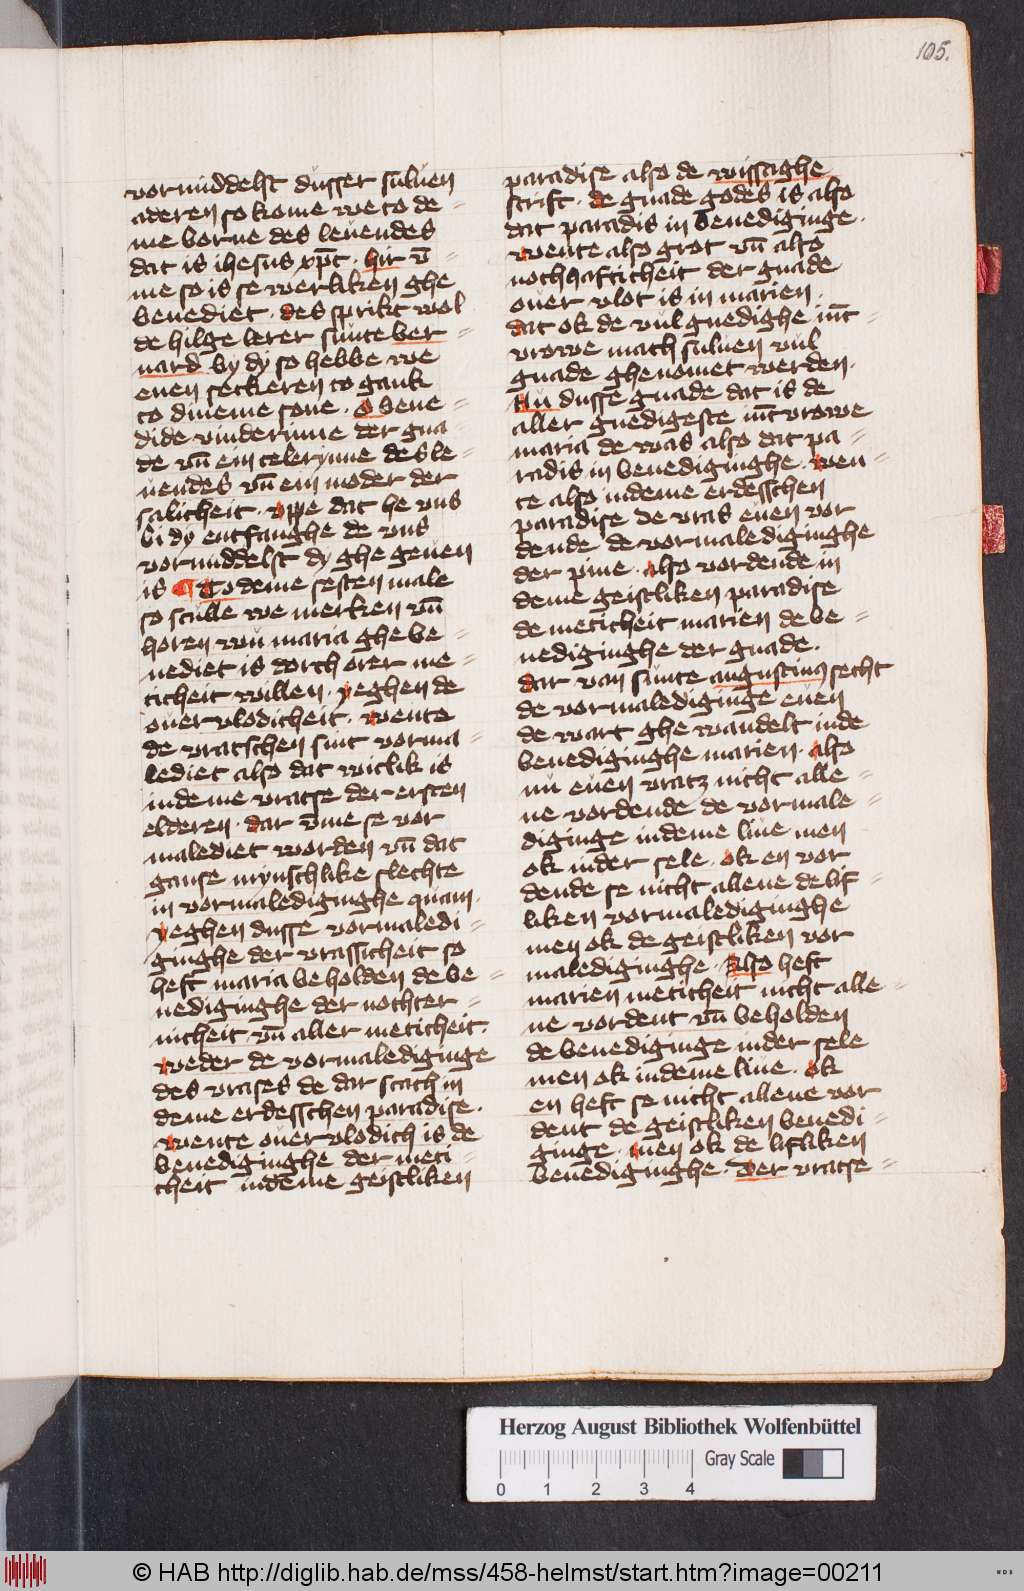 105.
vormiddelst dusser suluen
aderen so kome we to de=
me borne des leuendes
dat is ihesus xp̄c · hir v̄=
me so is se werliken ghe
benediet · des sprikt wol
de hilge lerer sunte ber=
nard by dy so hebbe we
enen seckeren to gank
to dineme sone · O bene=
dide vinderinne der gna=
de vn̄ ein telerynne des le=
uendes vn̄ ein moder der
salicheit · vppe dat he vns
bi dy entfanghe de vns
vormiddelst dy ghe geuen
is ¶ To deme sesten male
so sculle we merken vn̄
horen wu maria ghe be=
nediet is dorch orer me=
ticheit willen · yeghen de
ouer vlodicheit · wente
de vratschen sint vorma=
lediet also dat witlik is
in deme vratse der ersten
elderen · dar v̄me se vor
malediet worden vn̄ dat
ganse mynschlike slechte
in vormalediginghe quam ·
yeghen dusse vormaledi=
ginghe der vrassicheit so
heft maria be holden de be=
nediginghe der nochter=
nicheit vn̄ aller meticheit ·
weder de vormalediginge
des vrases de dar scach in
deme erdesschen paradise ·
wente ouer vlodich is de
benediginghe der meti=
cheit in deme geistliken
paradise also de wissaghe
scrift · de gnade godes is also
dat paradis in benediginge ·
wente also grot vn̄ also
nochhafticheit der gnade
ouer vlot is in marien ·
dat ok de vul gnedighe iūc=
vrowe mach suluen vul
gnade ghenomet werden ·
Nu dusse gnade dat is de
aller gnedigeste iūcvrowe
maria de was also dat pa=
radis in benediginghe · wen=
te also in deme erdesschen
paradise de vras enen vor
dende de vormalediginghe
der pine · also vordende in
deme geistliken paradise
de meticheit marien de be=
nediginghe der gnade ·
dar van sunte augustinus secht
de vormalediginge euen
de wart ghe wandelt in de
benediginghe marien · also
nu euen vratz nicht alle=
ne vordende de vormale=
diginge in deme liue men
ok in der sele · ok en vor
dende se nicht allene de lif=
liken vormalediginghe
men ok de geistliken vor
malediginghe · Also heft
marien meticheit nicht alle=
ne vordent vn̄ beholden
de benediginge in der sele
men ok in deme liue · ok
en heft se nicht allene vor
dent de geistliken benedi=
ginge · men ok de lifliken
benediginghe · Der vratse=
Herzog August Bibliothek Wolfenbüttel
Gray Scale
0 1 2 3 4
© HAB http://diglib.hab.de/mss/458-helmst/start.htm?image=00211